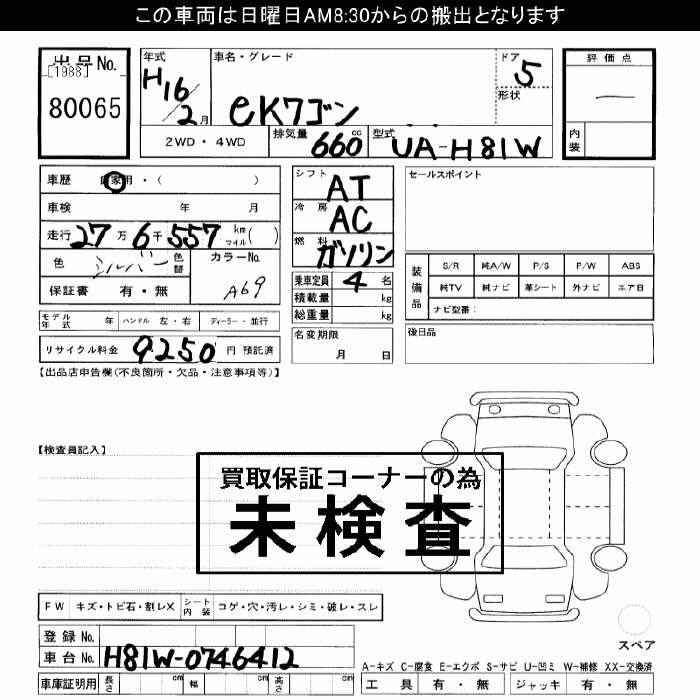 この車両は日曜日AM8:30からの搬出となります
出品No.
[1988]
80065
年式
H16/2月
車名・グレード
eKワゴン
ドア
5
形状
評価点
—
内装
2WD・4WD
排気量
660cc
型式
UA-H81W
車歴 自家用・( )
車検 年 月
走行 27万6千557 km マイル( )
色 シルバー 色替
カラーNo.
A69
保証書 有・無
シフト AT
冷房 AC
燃料 ガソリン
乗車定員 4名
積載量 kg
総重量 kg
名変期限
月 日
セールスポイント
装備品
S/R 純A/W P/S P/W ABS
純TV 純ナビ 革シート 外ナビ エアB
ナビ型番:
後日品
モデル年式 年 ハンドル 左・右 ディーラー・並行
リサイクル料金 9250 円 預託済
【出品店申告欄(不良箇所・欠品・注意事項等)】
【検査員記入】
買取保証コーナーの為
未検査
FW キズ・トビ石・割レX シート内装 コゲ・穴・汚レ・シミ・破レ・スレ
登録No.
車台No. H81W-0746412
車庫証明用 長さ cm 幅 cm 高さ cm
スペア
A-キズ C-腐食 E-エクボ S-サビ U-凹ミ W-補修 XX-交換済
工具 有・無 ジャッキ 有・無